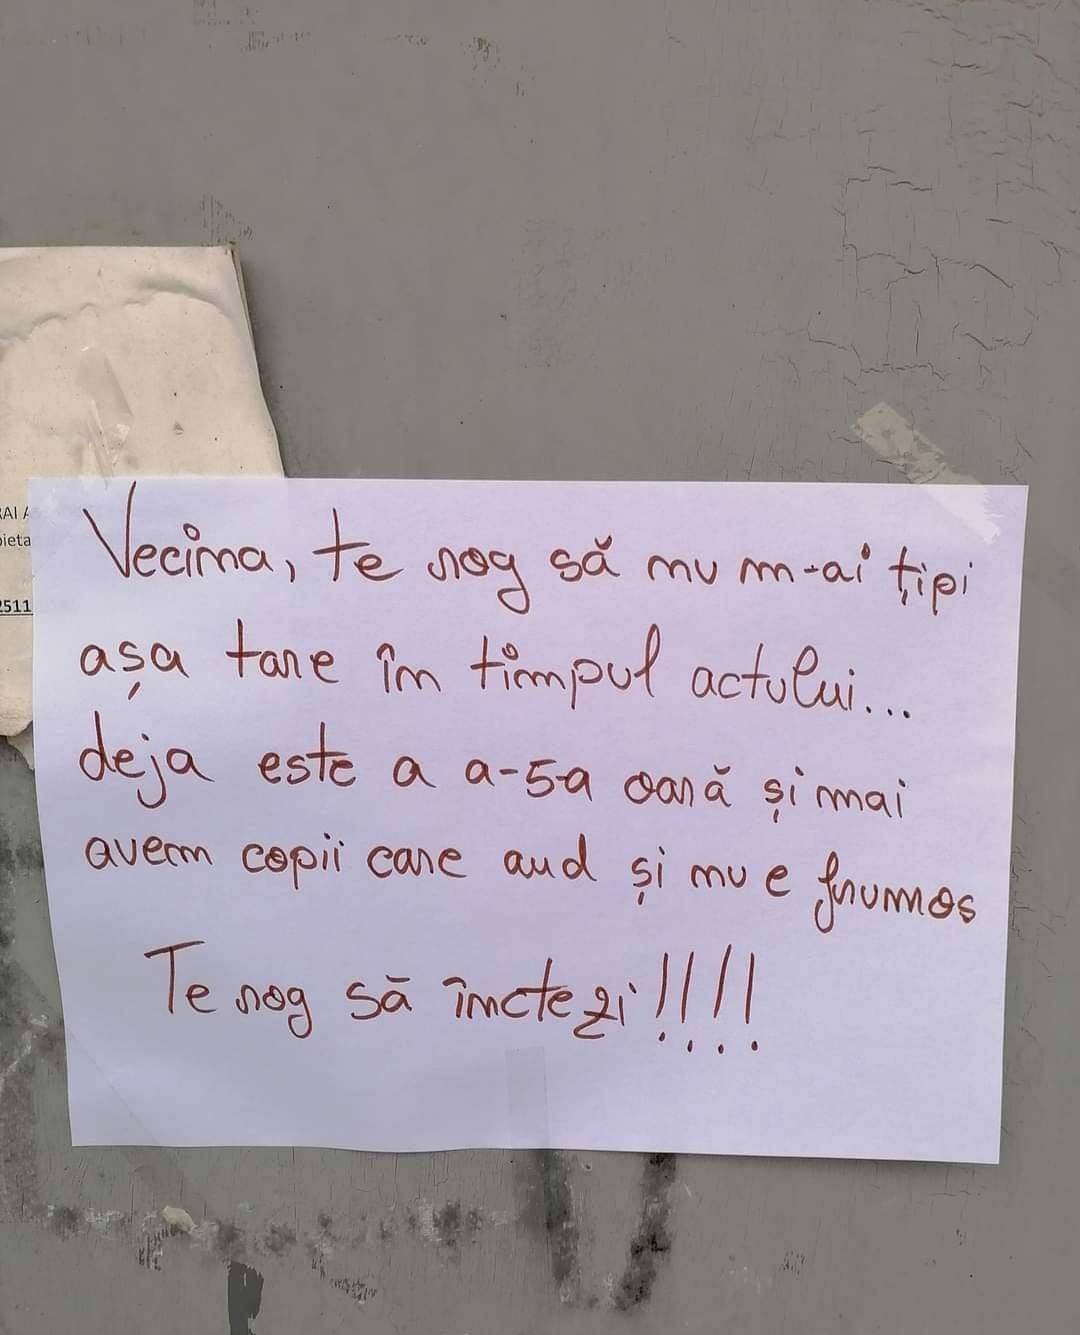 RAI A
pieta
2511
Vecina, te rog să nu m-ai țipi
așa tare în timpul actului...
deja este a a-5-a oară și mai
avem copii care aud și nu e frumos
Te rog să înctezi!!!!